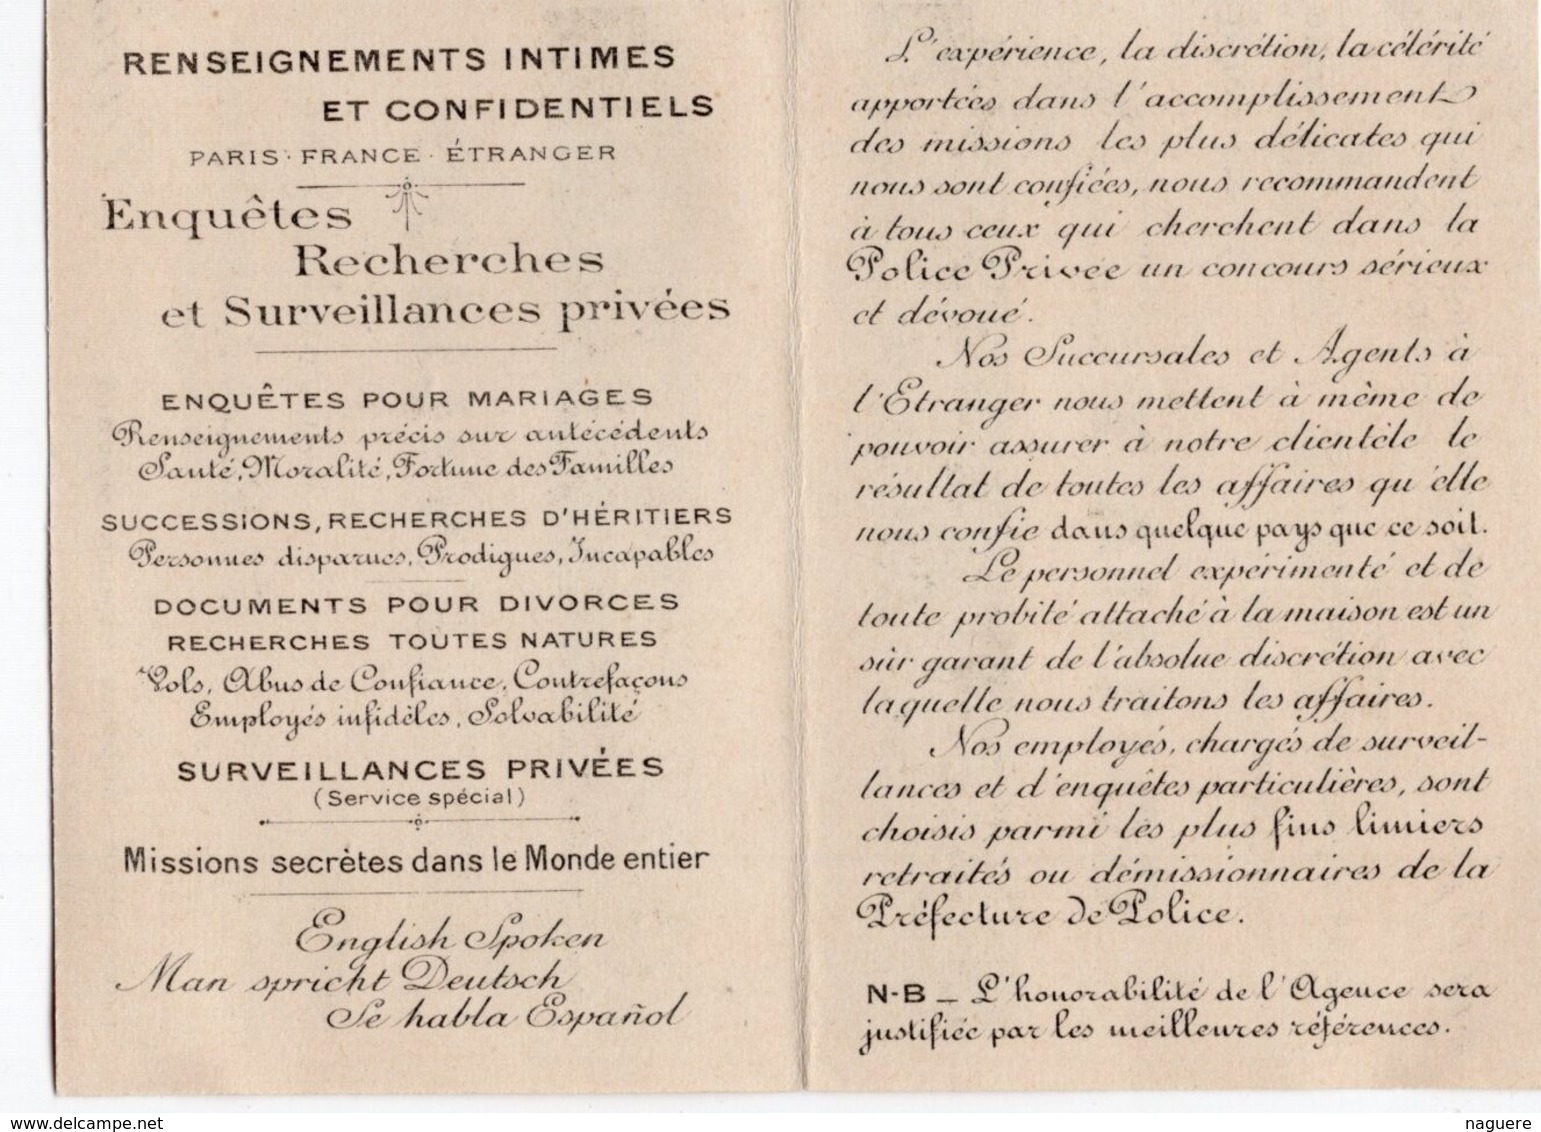 RENSEIGNEMENTS INTIMES
ET CONFIDENTIELS
PARIS · FRANCE · ÉTRANGER
Enquêtes
Recherches
et Surveillances privées
ENQUÊTES POUR MARIAGES
Renseignements précis sur antécédents
Santé, Moralité, Fortune des Familles
SUCCESSIONS, RECHERCHES D'HÉRITIERS
Personnes disparues, Prodigues, Incapables
DOCUMENTS POUR DIVORCES
RECHERCHES TOUTES NATURES
Vols, Abus de Confiance, Contrefaçons
Employés infidèles, Solvabilité
SURVEILLANCES PRIVÉES
(Service spécial)
Missions secrètes dans le Monde entier
English Spoken
Man spricht Deutsch
Se habla Español
L'expérience, la discrétion, la célérité
apportées dans l'accomplissement
des missions les plus délicates qui
nous sont confiées, nous recommandent
à tous ceux qui cherchent dans la
Police Privée un concours sérieux
et dévoué.
Nos Succursales et Agents à
l'Etranger nous mettent à même de
pouvoir assurer à notre clientèle le
résultat de toutes les affaires qu'elle
nous confie dans quelque pays que ce soit.
Le personnel expérimenté et de
toute probité attaché à la maison est un
sûr garant de l'absolue discrétion avec
laquelle nous traitons les affaires.
Nos employés, chargés de surveil-
lances et d'enquêtes particulières, sont
choisis parmi les plus fins limiers
retraités ou démissionnaires de la
Préfecture de Police.
N-B — L'honorabilité de l'Agence sera
justifiée par les meilleures références.
www.delcampe.net
naguere